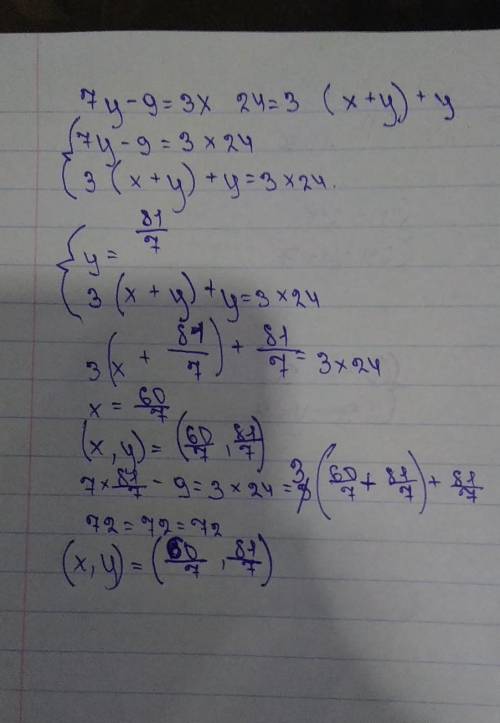 7y - 9 = 3x 24 = 3 (x + y) + y
{ 7y - 9 = 3 × 24
3 (x + y) + y = 3 × 24.
{ y = 81/7
3 (x + y) + y = 3 × 24
3 (x + 81/7) + 81/7 = 3 × 24
x = 60/7
(x, y) = (60/7, 81/7)
7 × 81/7 - 9 = 3 × 24 = 3 (60/7 + 81/7) + 81/7
72 = 72 = 72
(x, y) = (60/7, 81/7)